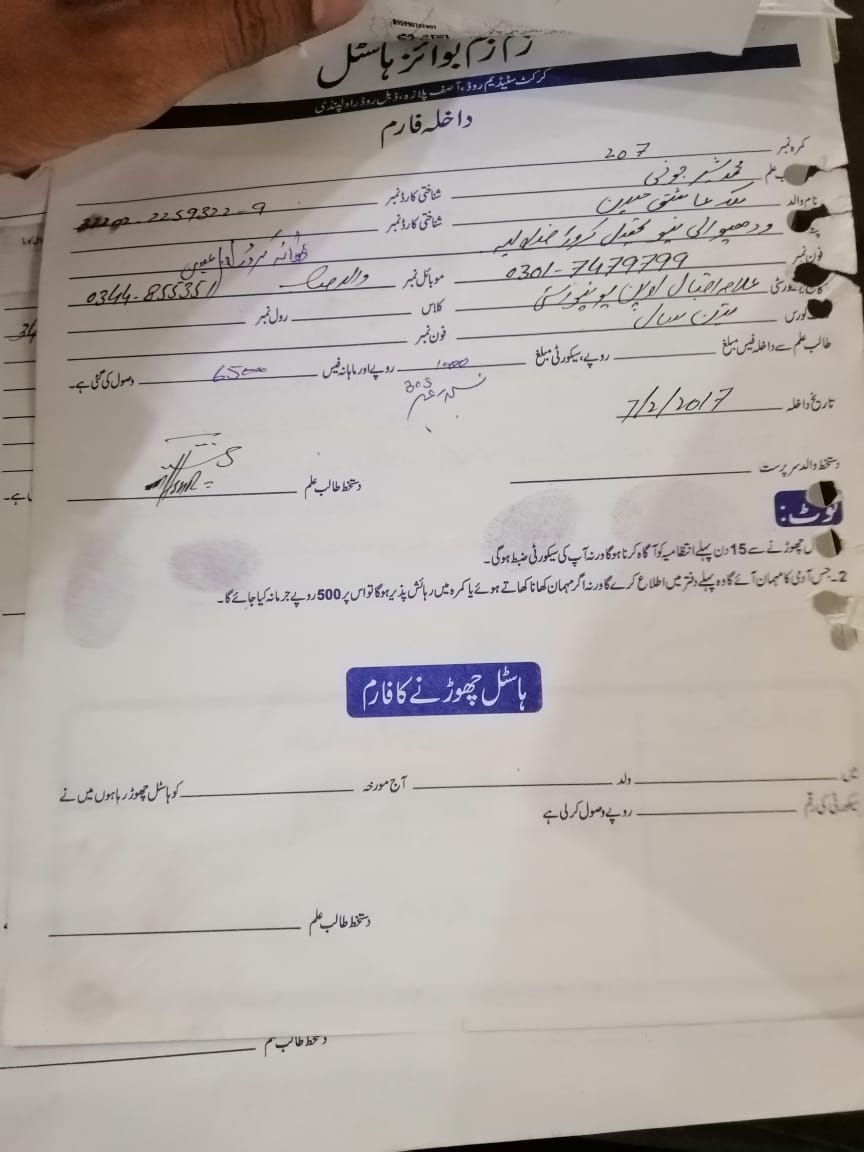 زم زم بوائز ہاسٹل
کرکٹ سٹیڈیم روڈ، آصف پلازہ، ڈبل روڈ راولپنڈی
داخلہ فارم
کمرہ نمبر 207
علم محمد بشیر شناختی کارڈ نمبر 32202-2259322-9
نام والد ملک عاشق حسین شناختی کارڈ نمبر
ودھیوالی تحصیل کروڑ ضلع لیہ
فون نمبر 0301-7479799 موبائل نمبر والد صاحب 0344-8553511
علامہ اقبال اوپن یونیورسٹی کلاس رول نمبر
کورس تین سال فون نمبر
طالب علم سے داخلہ فیس مبلغ روپے، سیکورٹی مبلغ 1000 روپے اور ماہانہ فیس 6500 وصول کی گئی ہے۔
305
تاریخ داخلہ 7/2/2017
دستخط والد سرپرست دستخط طالب علم
نوٹ:
چھوڑنے سے 15 دن پہلے انتظامیہ کو آگاہ کرنا ہوگا ورنہ آپ کی سیکورٹی ضبط ہوگی۔
2۔ جس آدمی کا مہمان آئے گا وہ پہلے دفتر میں اطلاع کرے گا ورنہ اگر مہمان کھانا کھاتے ہوئے یا کمرہ میں رہائش پذیر ہوگا تو اس پر 500 روپے جرمانہ کیا جائے گا۔
ہاسٹل چھوڑنے کا فارم
میں ولد آج مورخہ کو ہاسٹل چھوڑ رہا ہوں میں نے
سیکورٹی کی رقم روپے وصول کر لی ہے
دستخط طالب علم
دستخط طالب علم